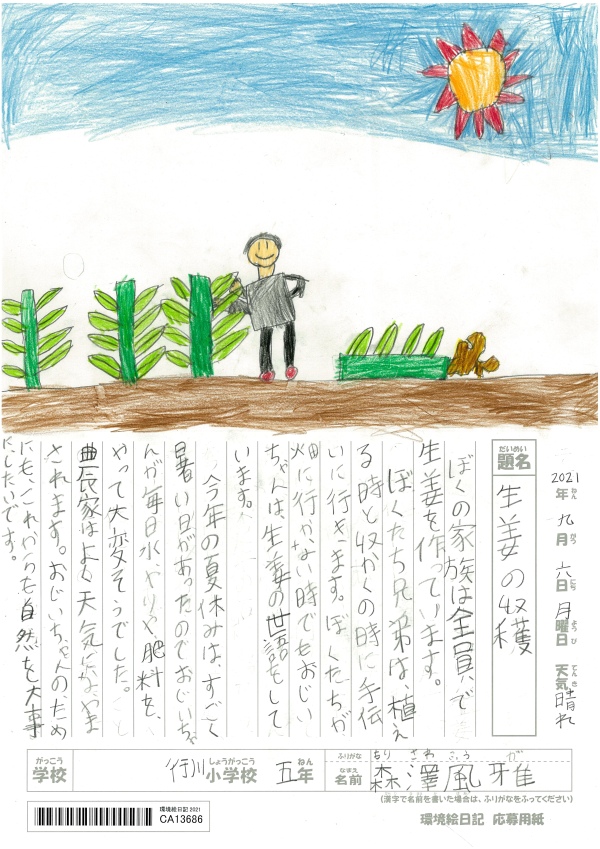 2021年ねん九月がつ六日にち月曜日ようび天気てんき晴れ
だいめい
題名 生姜の収穫
ぼくの家族は全員で
生姜を作っています。
ぼくたち兄弟は、植え
る時と収かくの時に手伝
いに行きます。ぼくたちが
畑に行かない時でもおじい
ちゃんは、生姜の世話をして
います。
今年の夏休みは、すごく
暑い日があったのでおじいちゃ
んが毎日水やりや肥料を、
やって大変そうでした。
農家はよく天気になやま
されます。おじいちゃんのため
にも、これからも自然を大事
にしたいです。
がっこう しょうがっこう ねん
学校 行川小学校 五年
ふりがな もり さわ ふう が
なまえ
名前 森澤風雅
(漢字で名前を書いた場合は、ふりがなをふってください)
環境絵日記 2021
CA13686
環境絵日記 応募用紙